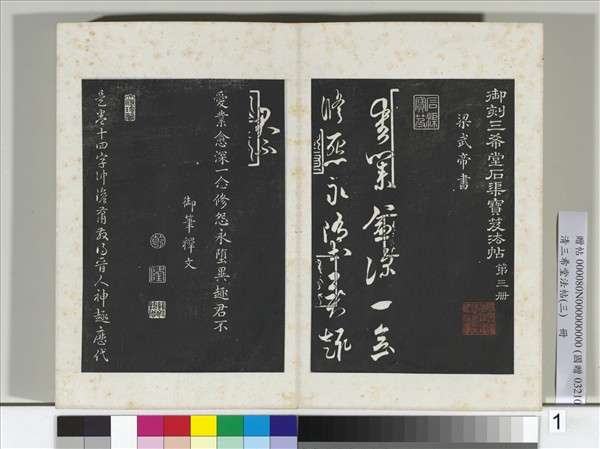 御刻三希堂石渠寶笈法帖 第三冊
梁武帝書
愛業愈深一念
修怨永墮異趣
君不
愛業愈深一念修怨永墮異趣君不
御筆釋文
是卷十四字冲澹蕭散得晉人神趣歷代
贈帖 000080N000000000 (國贈 03210
清三希堂法帖(三) 冊
1